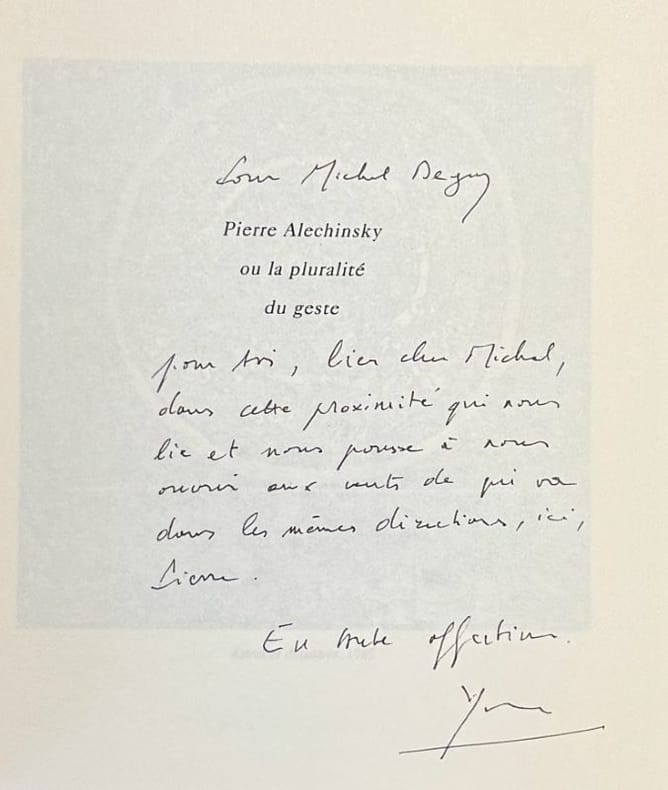 Pour Michel Deguy
Pierre Alechinsky
ou la pluralité
du geste
pour toi, bien cher Michel,
dans cette proximité qui nous
lie et nous pousse à nous
ouvrir aux vents de qui va
dans les mêmes directions, ici,
Pierre.
En toute affection.
Yves